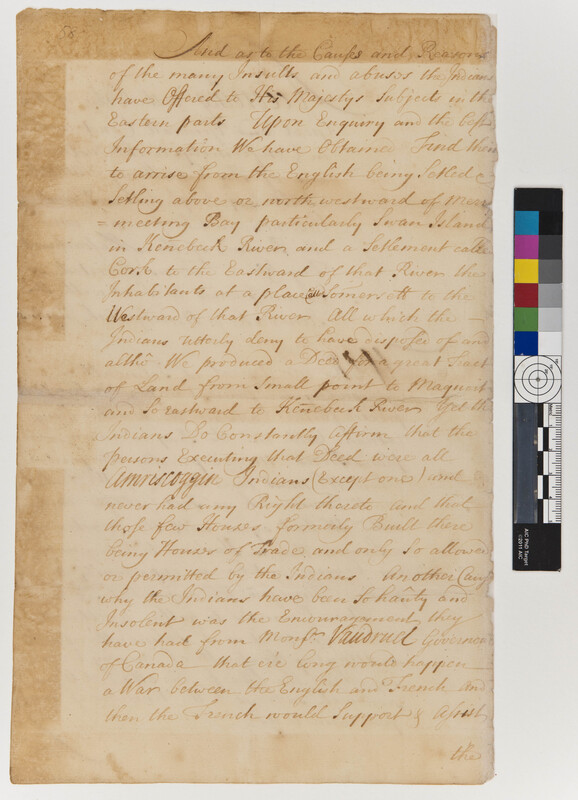 58
And as to the Causes and Reasons
of the many Insults and abuses the Indians
have Offered to His Majestys Subjects in the
Eastern parts Upon Enquiry and the best
Information We have Obtained Find them
to arrise from the English being Setled &
Setling above or northwestward of Merr
=meeting Bay particularly Swan Island
in Kenebeck River and a Setlement calle
Cork to the Eastward of that River the
Inhabitants at a place call Somersett to the
Westward of that River All which the
Indians utterly deny to have disposed of and
altho We produced a Deed for a great Tract
of Land from Small point to Maquoit
and So eastward to Kenebeck River Yet the
Indians Do Constantly affirm that the
persons Executing that Deed were all
Amriscoggin Indians (Except one) and
never had any Right thereto and that
those few Houses formerly Built there
being Houses of Trade and only so allowed
or permitted by the Indians Another Cause
why the Indians have been So haúty and
Insolent was the Encouragement they
have had from Monsr. Vaudruel Governour
of Canada that e're long would happen
a War between the English and French and
then the French would Support & Assist
the